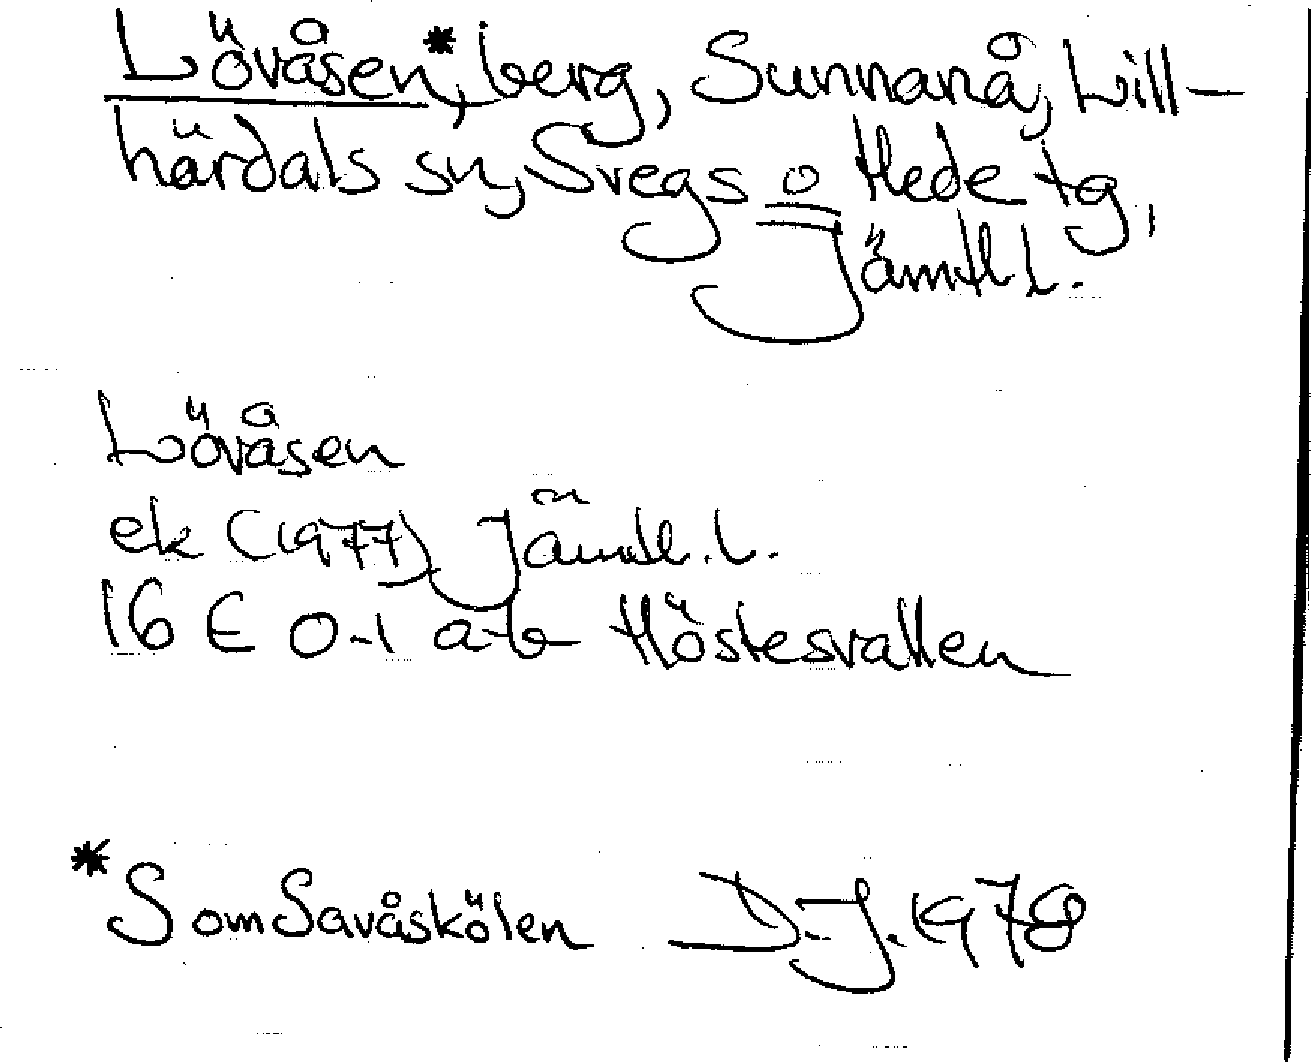 Lövåsen*, berg, Sunnanå, Lill-
härdals sn, Svegs o Hede tg,
Jämtl l.
Lövåsen
ek (1977) Jämtl. l.
16 E 0-1 a-b Höstesvallen
* Som Savåskölen D.J. 1978